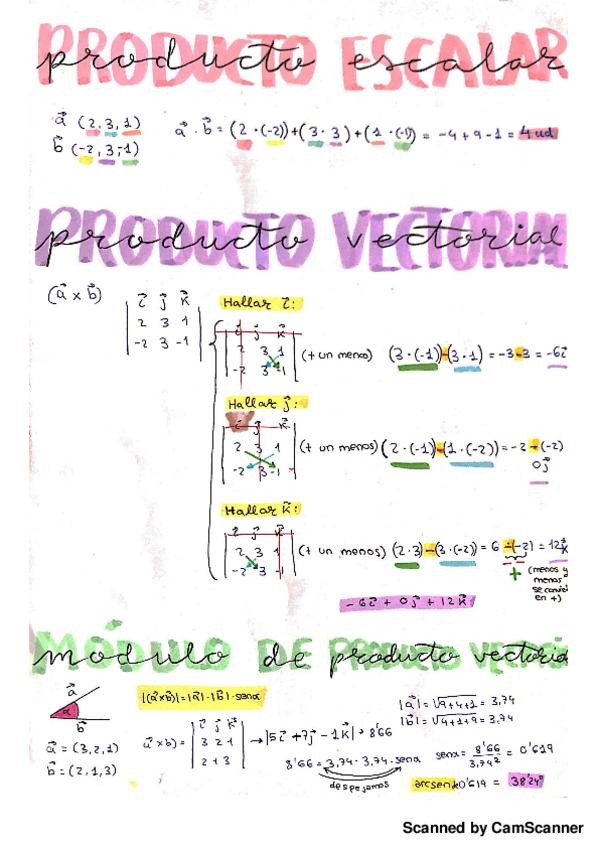 producto escalar
PRODUCTO ESCALAR
a⃗ (2,3,1)
b⃗ (-2,3,-1)
a⃗ · b⃗ = (2 · (-2)) + (3 · 3) + (1 · (-1)) = -4 + 9 - 1 = 4 ud
producto vectorial
PRODUCTO VECTORIAL
(a⃗ x b⃗)
i⃗ j⃗ k⃗
2 3 1
-2 3 -1
Hallar i⃗:
i⃗ j⃗ k⃗
2 3 1
-2 3 -1
(+ un menos) (3 · (-1)) - (3 · 1) = -3 - 3 = -6i⃗
Hallar j⃗:
i⃗ j⃗ k⃗
2 3 1
-2 3 -1
(+ un menos) (2 · (-1)) - (1 · (-2)) = -2 - (-2)
0j⃗
Hallar k⃗:
i⃗ j⃗ k⃗
2 3 1
-2 3 -1
(+ un menos) (2 · 3) - (3 · (-2)) = 6 - (-2) = 12k⃗
+ (menos y
menos
en +)
-6i⃗ + 0j⃗ + 12k⃗
módulo de producto vectoria
MÓDULO DE PRODUCTO
a⃗
α
b⃗
a⃗ = (3,2,1)
b⃗ = (2,1,3)
|(a⃗xb⃗)| = |a⃗| · |b⃗| · senα
a⃗ x b) =
i⃗ j⃗ k⃗
3 2 1
2 + 3
→ |5i⃗ + 7j⃗ - 1k⃗| → 8'66
8'66 = 3,74 · 3,74 · senα
despejamos
|a⃗| = √9+4+1 = 3,74
|b⃗| = √4+1+9 = 3,74
senα = 8'66 / 3,74² = 0'619
arcsen 0'619 = 38'24°
Scanned by CamScanner